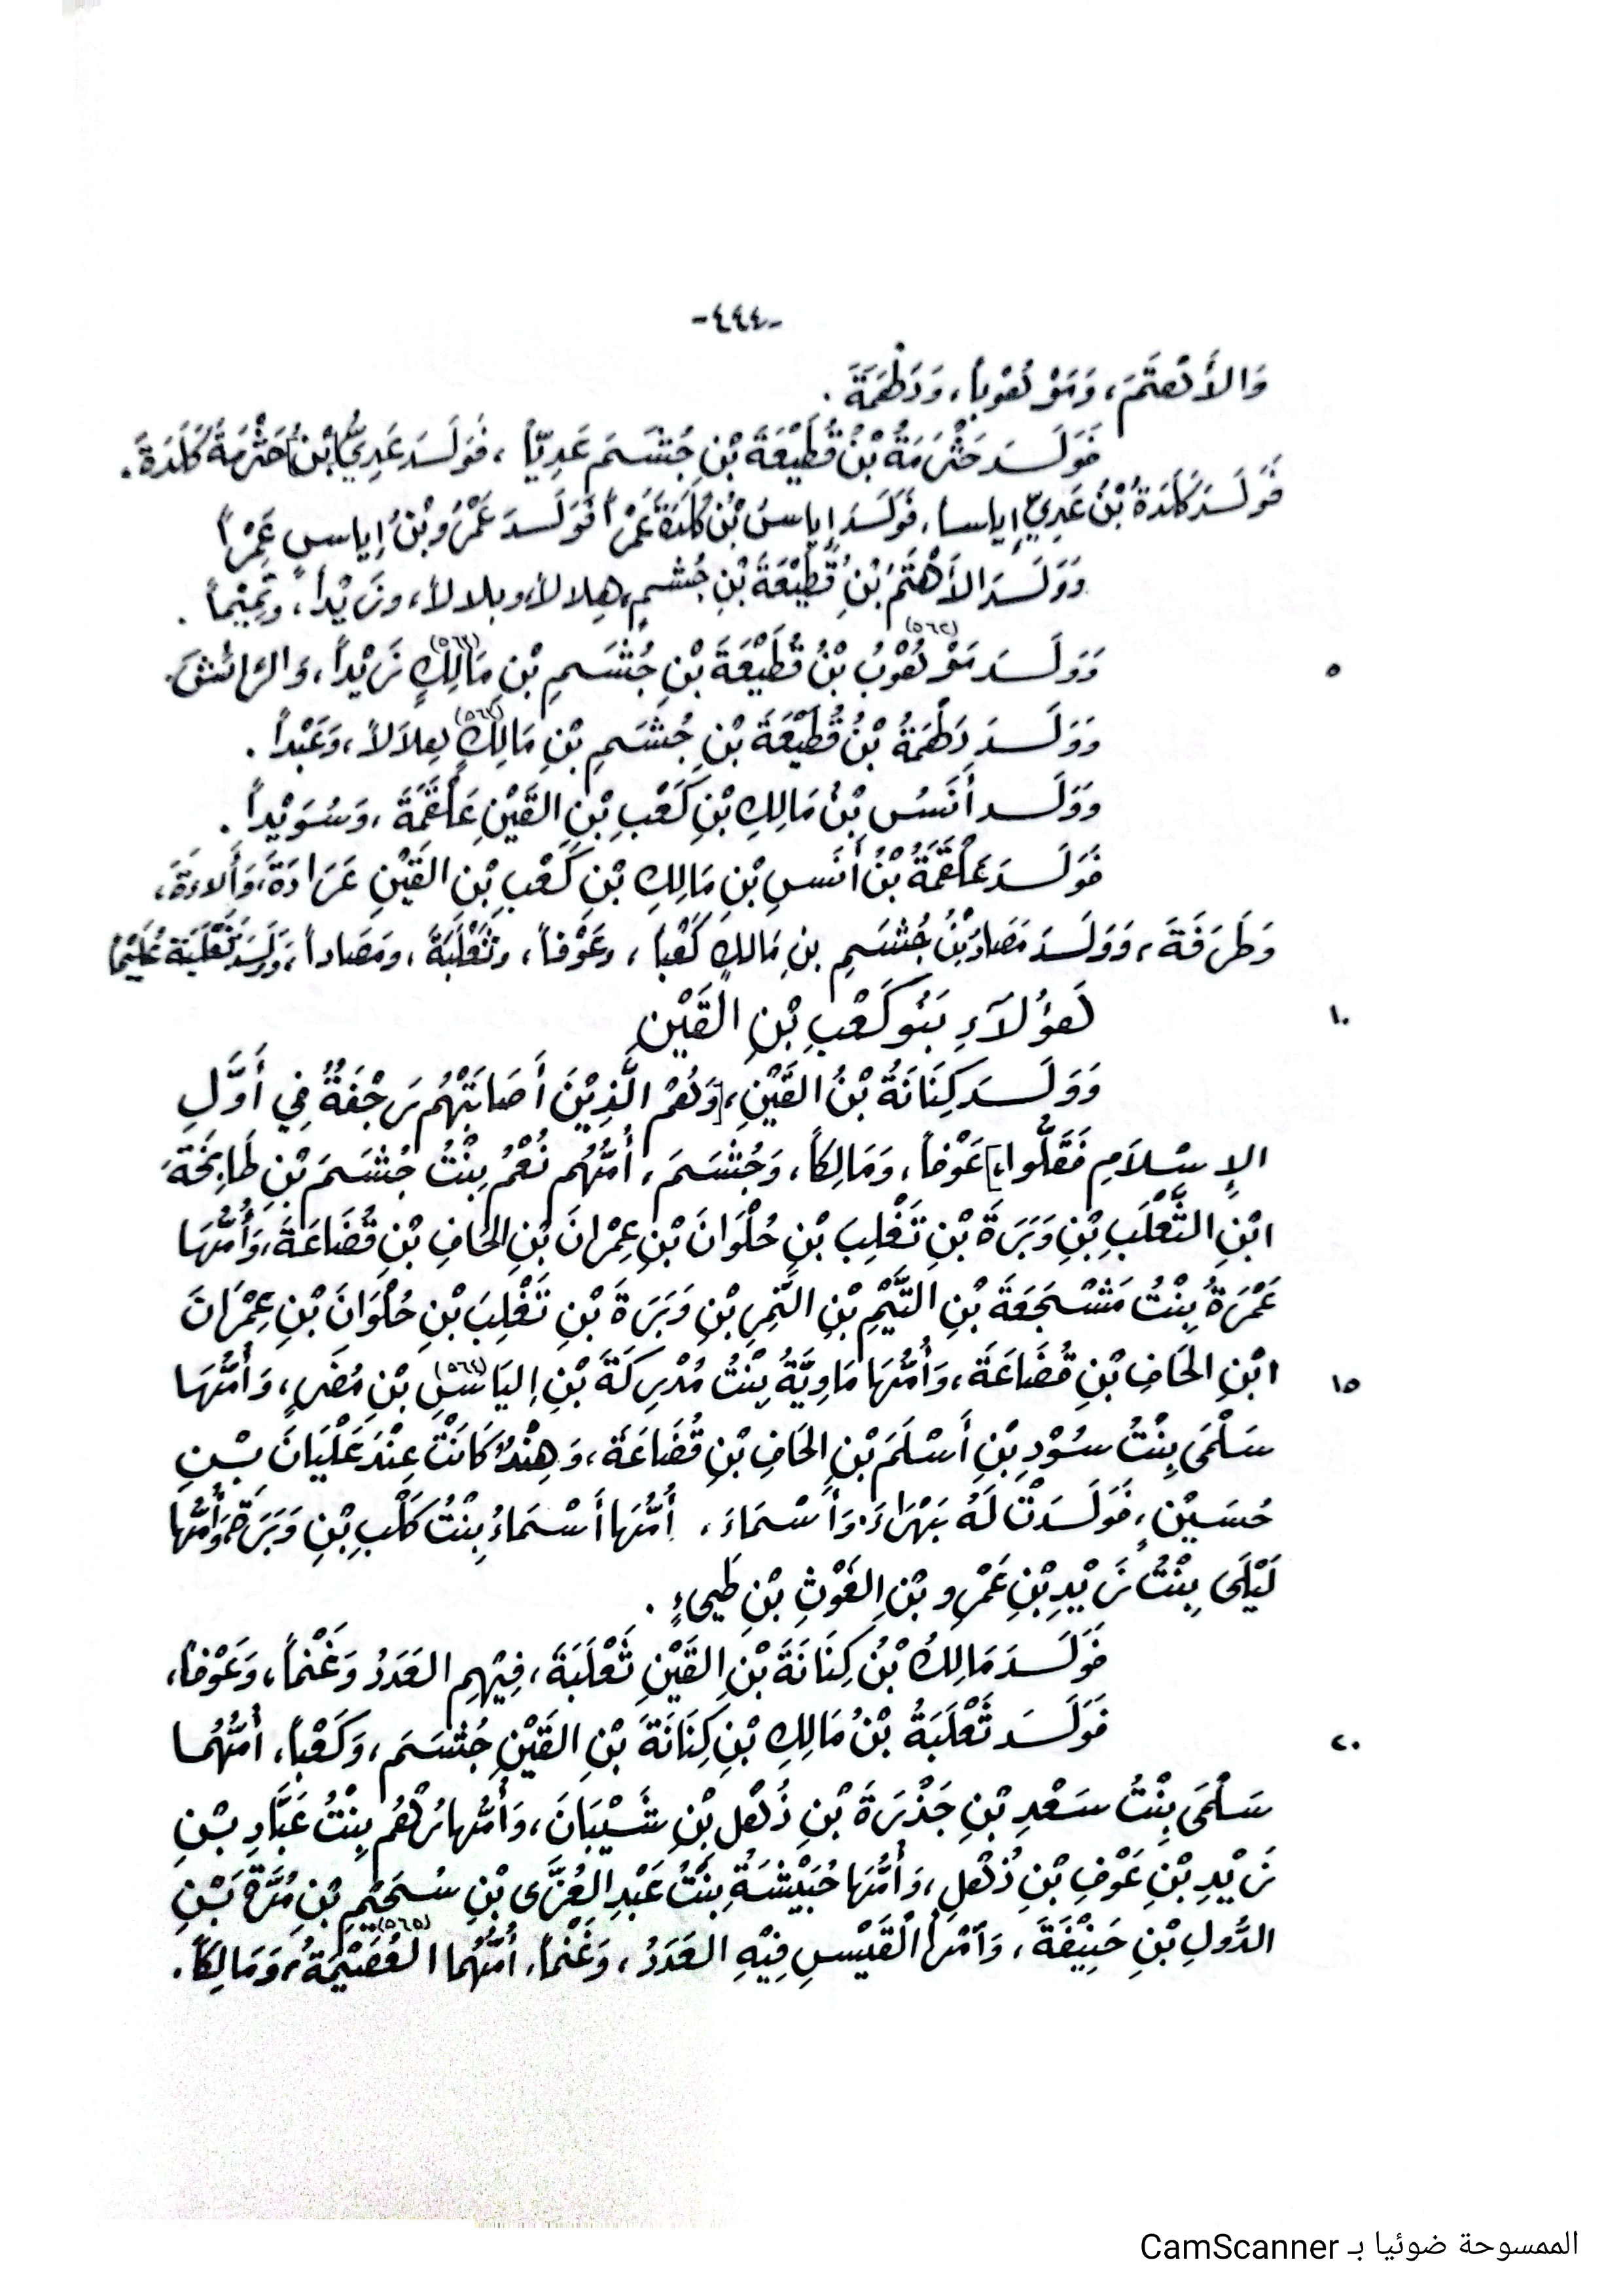 -٤٤٤-
وَالأَهْتَمَ، وَمَوْهُوباً، وَدَطْمَةَ .
فَوَلَدَ حَثْرَمَةُ بْنُ قُطَيْعَةَ بْنِ جُشَمَ عَدِيّاً، فَوَلَدَ عَدِيُّ [بْنُ] حَثْرَمَةَ كَلَدَةَ.
فَوَلَدَ كَلَدَةُ بْنُ عَدِيٍّ إِياساً، فَوَلَدَ إِياسُ بْنُ كَلَدَةَ عَمْراً فَوَلَدَ عَمْرُو بْنُ إِياسٍ عَمْراً
وَوَلَدَ الأَهْتَمُ بْنُ قُطَيْعَةَ بْنِ جُشَمٍ، هِلالاً، وبلالاً، وزَيْداً، وتَمِيْماً .
وَوَلَدَ مَوْهُوْبُ (٥٦٢) بْنُ قُطَيْعَةَ بْنِ جُشَمِ بْنِ مَالِكٍ (٥٦٣) زَيْداً، وَالرَائشَ.
٥
وَوَلَدَ دَطْمَةُ بْنُ قُطَيْعَةَ بْنِ جُشَمِ بْنِ مَالِكٍ (٥٦٣) هِلاَلاً، وَعَبْداً .
وَوَلَد أَنَسُ بْنُ مَالِكِ بْنِ كَعْبِ بْنِ القَيْنِ عَلْقَمَةَ، وَسُوَيْداً .
فَوَلَدَ عَلْقَمَةُ بْنُ أَنَسِ بْنِ مَالِكِ بْنِ كَعْبِ بْنِ القَيْنِ عَرَادَةَ، وَأَلاءَةَ،
وَطَرَفَةَ، وَوَلَدَ مَصَادُ بْنُ جُشَمِ بنِ مَالكٍ كَعْباً، وعَوْفاً، وثَعْلَبَةَ، ومَصَاداً، وَوَلَدَ ثَعْلَبَة عُلَيْماً
هَؤُلَآءِ بَنُو كَعْبِ بْنِ القَيْنِ
١٠
وَوَلَدَ كِنَانَةُ بْنُ القَيْنِ، [وَهُمْ الَّذِيْنَ أَصَابَتْهُم رَجْفَةٌ فِي أَوَّلِ
الإِسْلاَمِ فَقَلُّوا،] عَوْفاً، وَمَالِكاً، وَجُشَمَ، أُمُّهُم نُعْمُ بِنْتُ جُشَمَ بْنِ طَابِخَةَ
ابْنِ الثَّعْلَبِ بْنِ وَبَرَةَ بْنِ تَغْلِبَ بْنِ حُلْوَانَ بْنِ عِمْرانَ بْنِ الحَافِ بْنِ قُضَاعَةَ، وَأُمُّهَا
عَمْرَةُ بِنْتُ مَشْجَعَةَ بْنِ التَّيْمِ بْنِ النَّمِرِ بْنِ وَبَرَةَ بْنِ تَغْلِبَ بْنِ حُلْوَانَ بْنِ عِمْرَانَ
ابْنِ الحَافِ بْنِ قُضَاعَةَ، وَأُمُّهَا مَاوِيَّةُ بِنْتُ مُدْرِكَةَ بْنِ اليَاسِ (٥٦٤) بْنِ مُضَرٍ، وَأُمُّهَا
١٥
سَلْمَى بِنْتُ سُوْدِ بْنِ أَسْلَمَ بْنِ الحَافِ بْنِ قُضَاعَةَ، وَهِنْدُ كَانَتْ عِنْدَ عَلْيَانَ بْنِ
حُسَيْنٍ، فَوَلَدَتْ لَهُ بَهْرَاءَ، وَأَسْمَاءَ، أُمُّهَا أَسْمَاءُ بِنْتُ كَلْبِ بْنِ وَبَرَةَ، وَأُمُّهَا
لَيْلَى بِنْتُ زَيْدِ بْنِ عَمْرِو بْنِ الغَوْثِ بْنِ طَيىءٍ .
فَوَلَدَ مَالِكُ بْنُ كِنَانَةَ بْنِ القَيْنِ ثَعْلَبَةَ، فِيْهِم العَدَدُ وَغَنْماً، وَعَوْفاً،
فَوَلَدَ ثَعْلَبَةُ بْنُ مَالِكِ بْنِ كِنَانَةَ بْنِ القَيْنِ جُشَمَ، وَكَعْباً، أُمُّهُما
٢٠
سَلْمَى بِنْتُ سَعْدِ بْنِ جَذْرَةَ بْنِ ذُهْلِ بْنِ شَيْبَانَ، وَأُمُّها رُهْمُ بِنْتُ عَبَّادِ بْنِ
زَيْدِ بْنِ عَوْفِ بْنِ ذُهْلِ، وَأُمُّهَا حُبَيْشَةُ بِنْتُ عَبْدِ العُزَّى بْنِ سُحَيْمِ بْنِ مُرَّةَ بْنِ
الدُّولِ بْنِ حَنِيْفَةَ، وَآمْرأَ القَيْسِ فِيْهِ العَدَدُ، وَغَنْماً، أُمُّهُما العُصَيْمَةُ (٥٦٥)، وَمَالِكاً.
الممسوحة ضوئيا بـ CamScanner